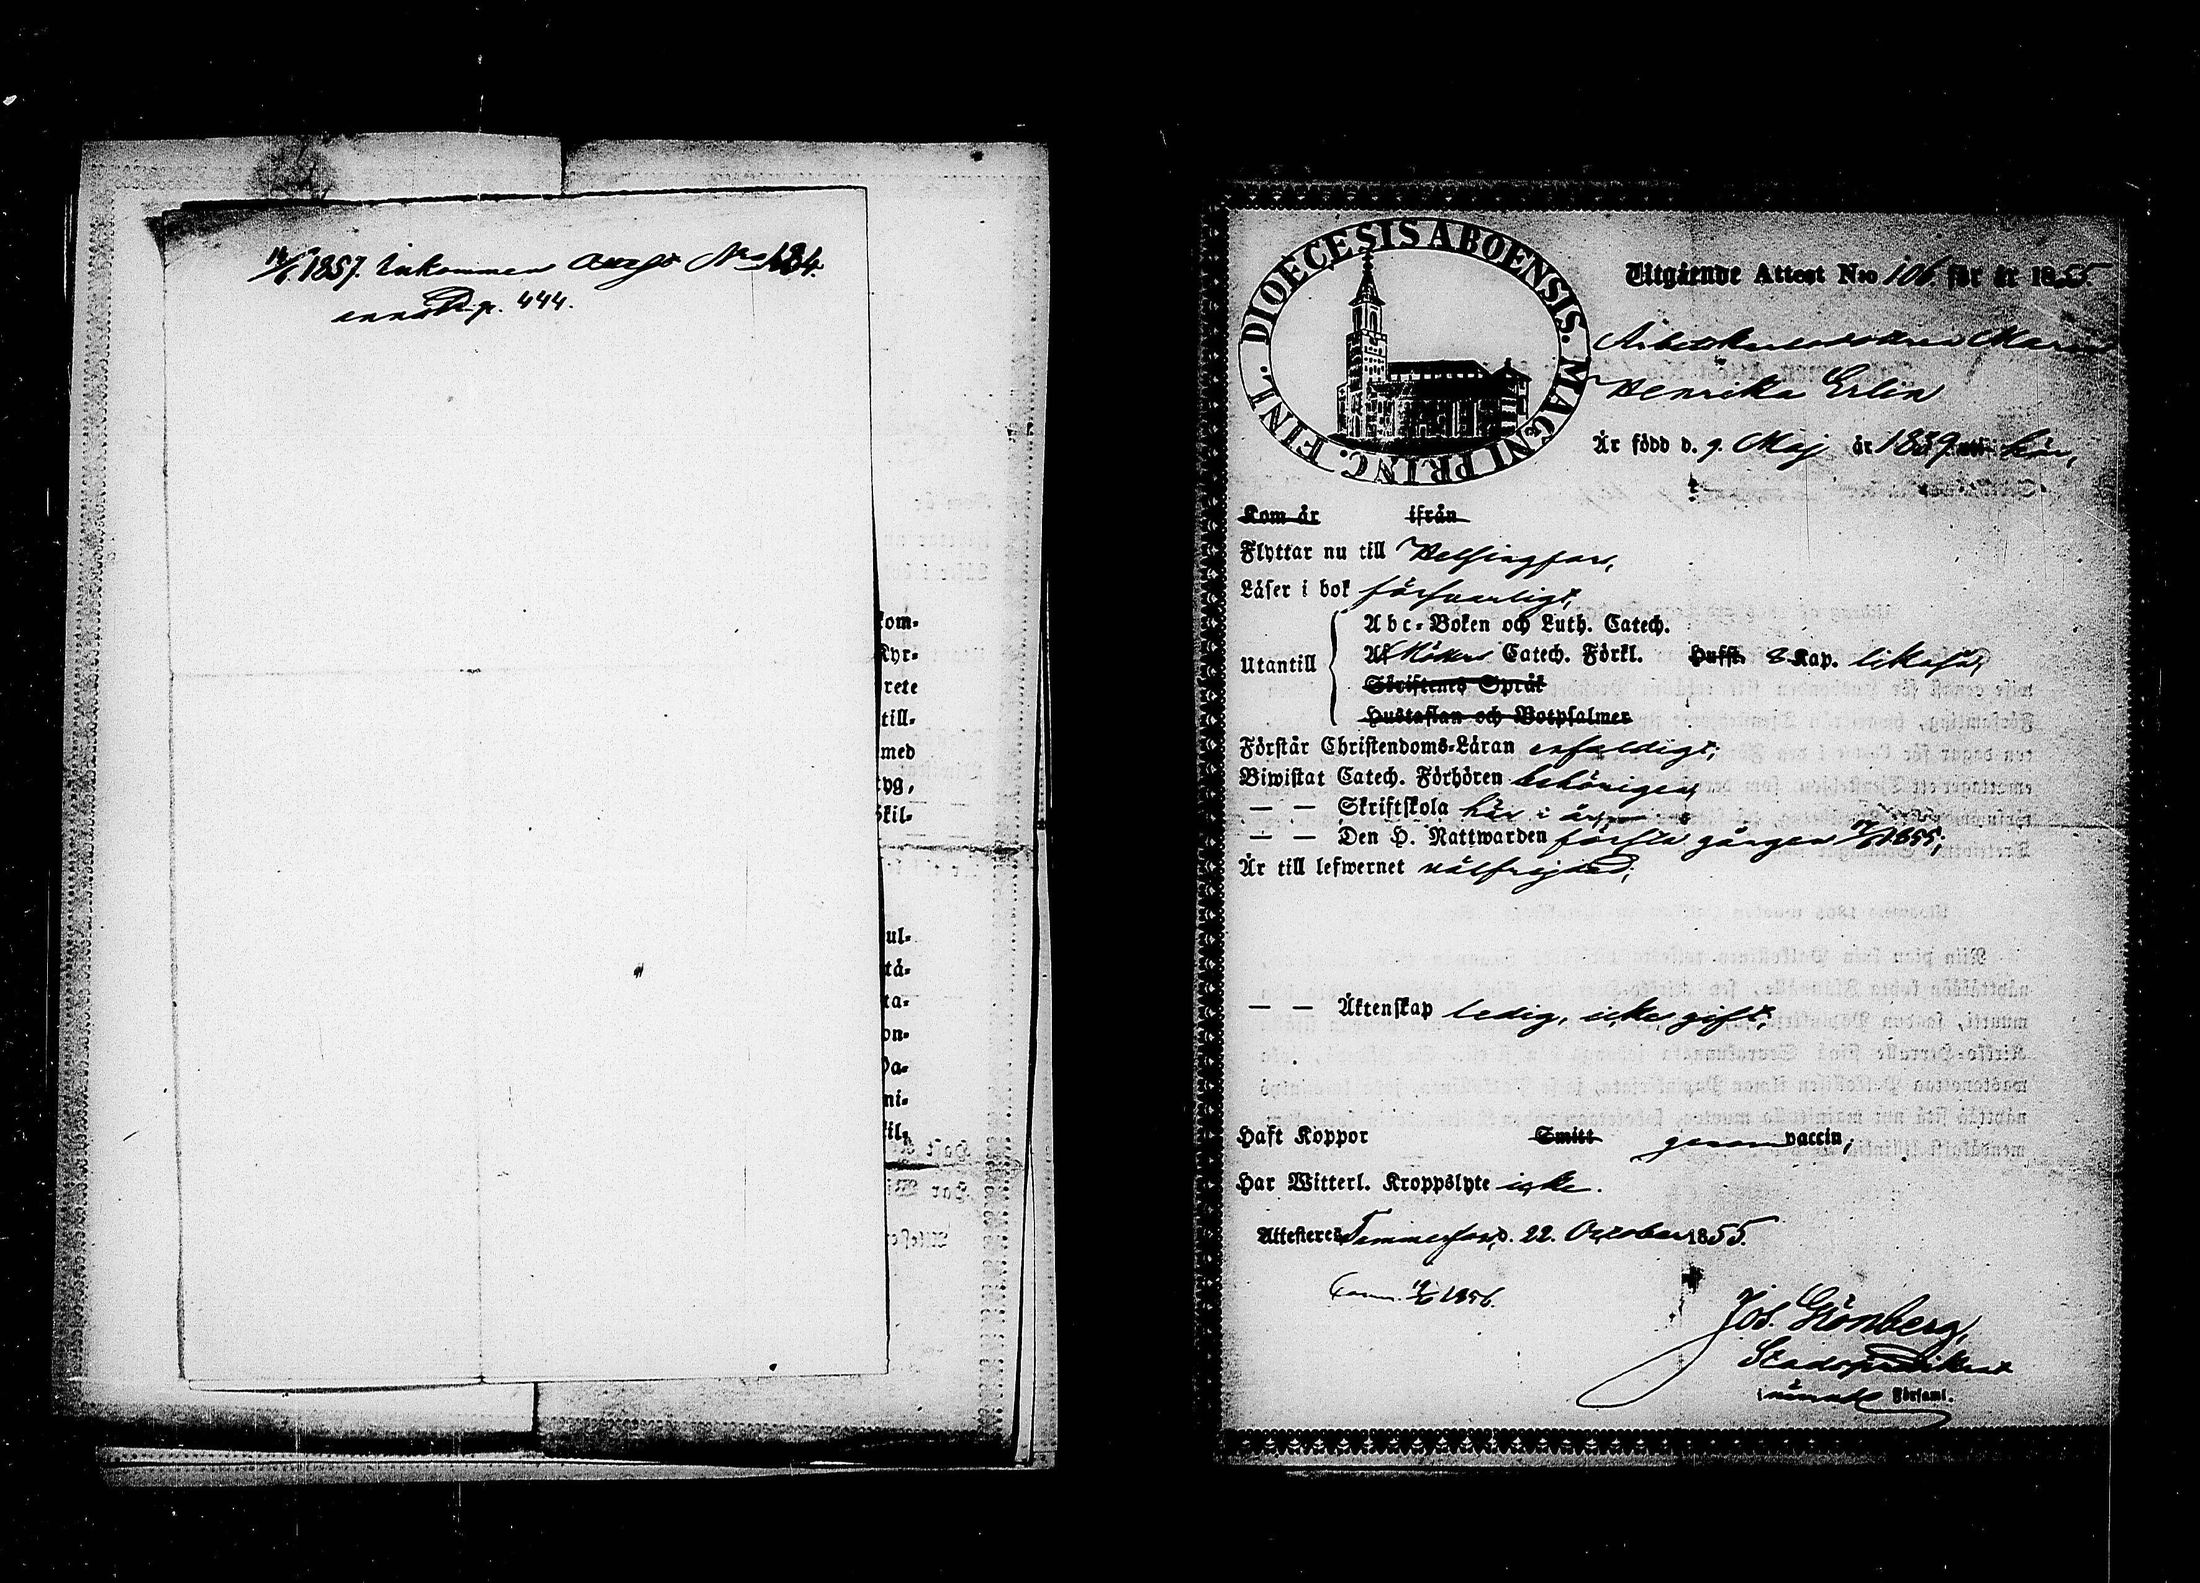 1857. Inkommen attest No 134.
p. 444.
kom-
Kyr-
rete
till-
med
tyg,
skil-
ul-
stå-
ta-
on-
Pa-
ni-
DIOECESIS ABOENSIS. MAGNI PRINC. FINL.
Utgående Attest N:o 106. för år 1855.
Arbetskarlsdottren Maria
Henrika Erlin
Är född d. 9. Maj år 1839. att här,
Kom år ifrån
Flyttar nu till Helsingfors,
Läser i bok försvarligt,
Utantill
Abc-Boken och Luth. Catech.
Catech. Förkl. Hufst. 8 Kap. likaså,
Skriftenes Språk
Hustaflan och Botpsalmer
Förstår Christendoms-Läran enfaldigt;
Biwistat Catech. Förhören behörigen,
— — Skriftskola här i år,
— — Den H. Nattwarden första gången 1855;
Är till lefwernet välfrejdad;
— — Äktenskap ledig, icke gift;
Haft Koppor Smitt genom vaccin,
Har Witterl. Kroppslyte icke.
Attesteres Tammerfors, d. 22. October 1855.
1856.
Jos. Grönberg,
Stadspredikant
i Förfaml.